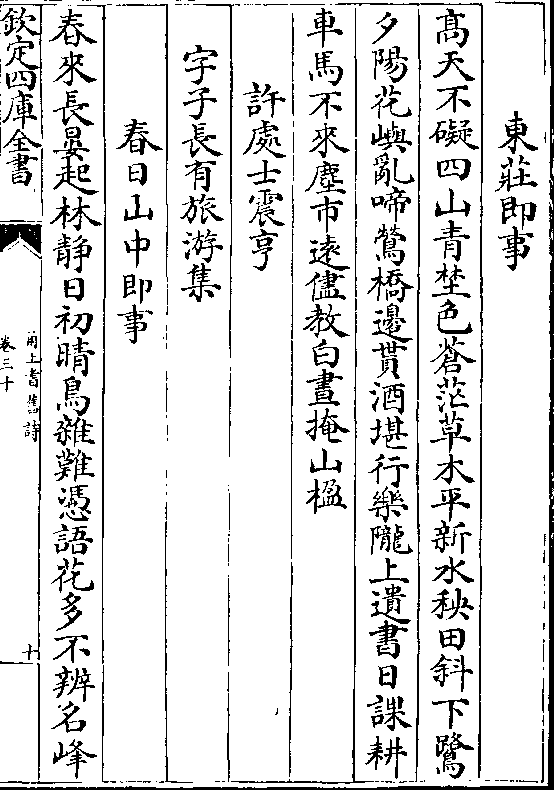 東莊即事
髙天不礙四山青埜色蒼茫草木平新水秧田斜下鷺
夕陽花嶼亂啼鶯橋邊貰酒堪行樂隴上遺書日課耕
車馬不來塵市逺儘教白晝掩山楹
許處士震亨
字子長有旅游集
春日山中即事
春來長晏起林靜日初晴鳥雜難憑語花多不辨名峰
欽定四庫全書
甬上耆舊詩
卷三十
十